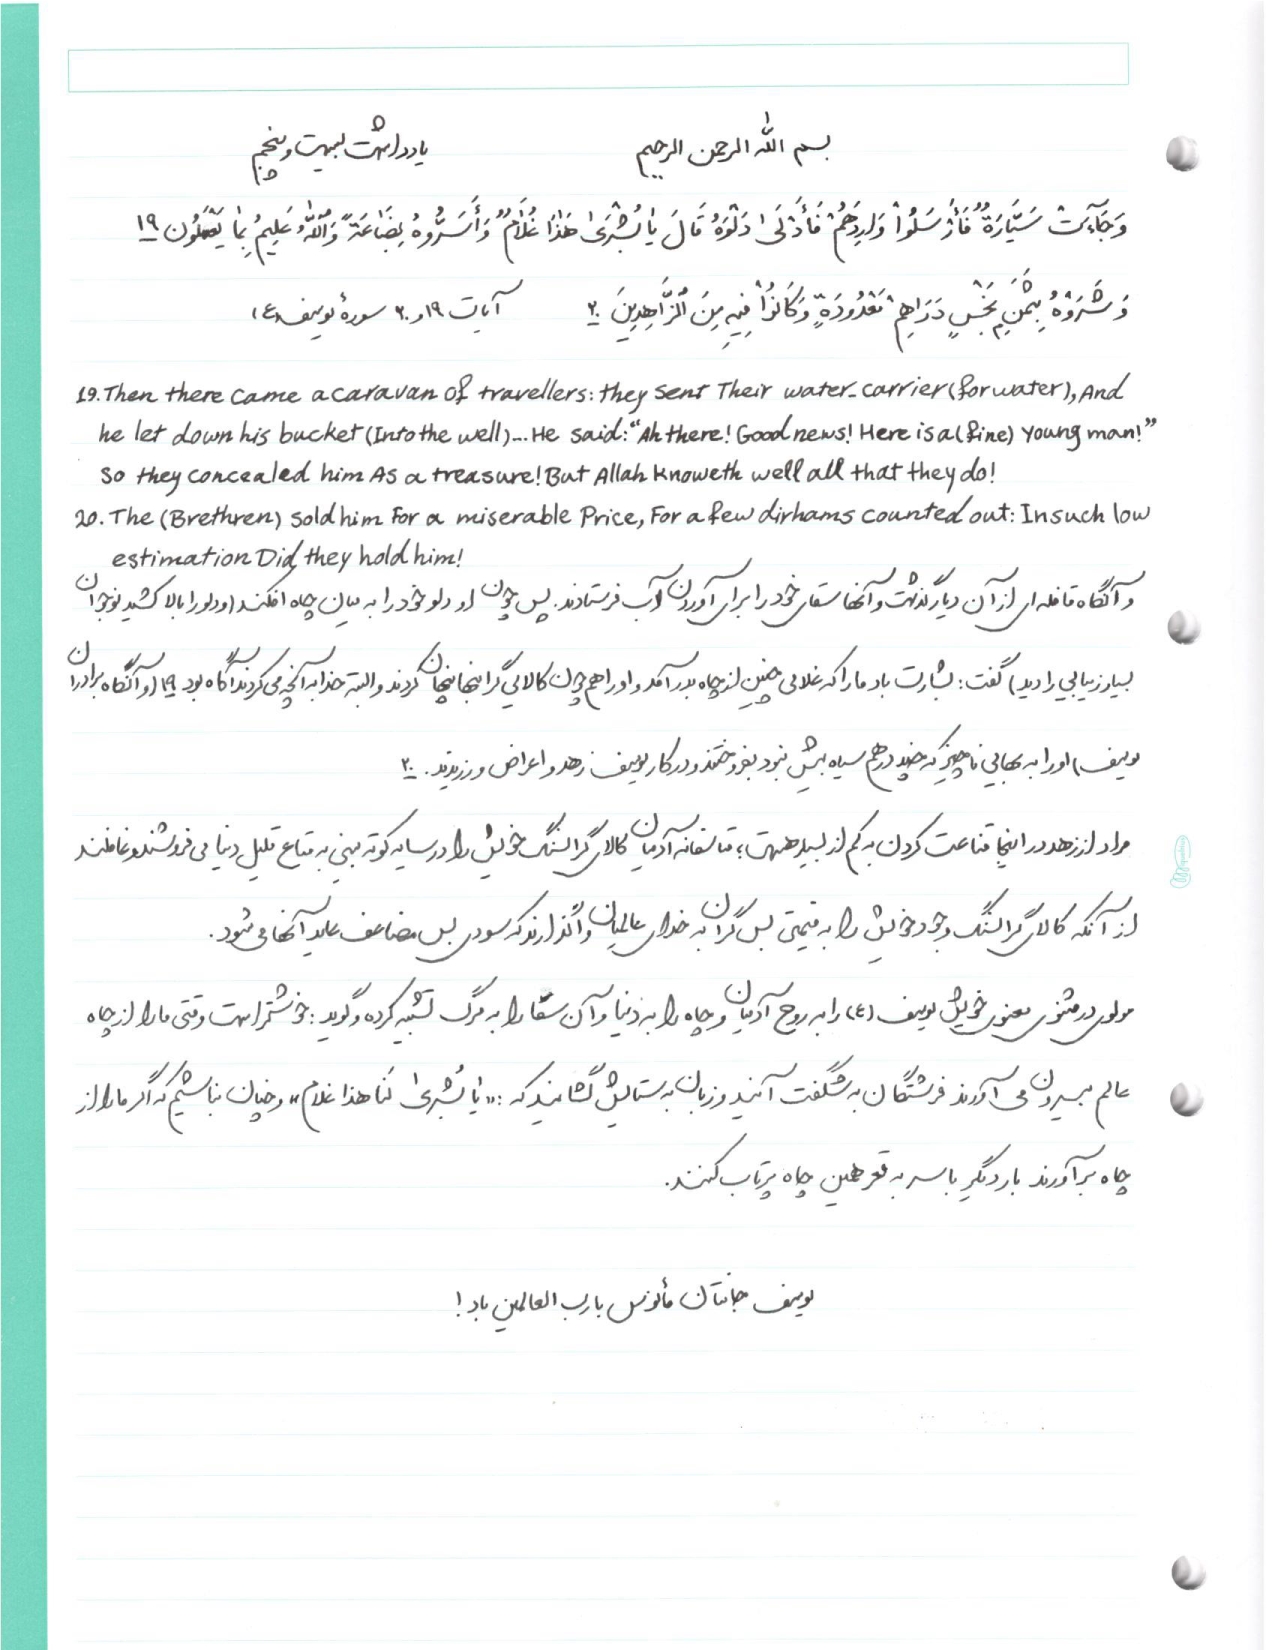 بسم الله الرحمن الرحیم
یادداشت بیست و پنجم
وَجَآءَتْ سَيَّارَةٌ فَأَرْسَلُوا۟ وَارِدَهُمْ فَأَدْلَىٰ دَلْوَهُ قَالَ يَا بُشْرَىٰ هَٰذَا غُلَٰمٌ وَأَسَرُّوهُ بِضَاعَةً وَٱللَّهُ عَلِيمٌ بِمَا يَعْمَلُون ١٩
وَشَرَوْهُ بِثَمَنٍ بَخْسٍ دَرَاهِمَ مَعْدُودَةٍ وَكَانُوا۟ فِيهِ مِنَ ٱلزَّاهِدِينَ ٢٠ آیات ۱۹ و ۲۰ سورهٔ یوسف (ع)
19. Then there came a caravan of travellers: they sent Their water-carrier (for water), And
he let down his bucket (Into the well)... He said: "Ah there! Good news! Here is a (fine) young man!"
So they concealed him As a treasure! But Allah Knoweth well all that they do!
20. The (Brethren) Sold him For a miserable Price, For a few dirhams counted out: In such low
estimation Did they hold him!
و آنگاه قافله ای از آن دیار گذشت و آنها سقای خود را برای آوردن آب فرستادند. پس چون او دلو خود را به میان چاه افکند (و دلو را بالا کشید نوجوان
بسیار زیبایی را دید) گفت: بشارت باد ما را که غلامی چنین از چاه بدر آمد و او را همچون کالایی گرانبها پنهان کردند و البته خدا به آنچه می کردند آگاه بود ۱۹ (و آنگاه برادران
یوسف) او را به بهایی ناچیز که چند درهم سیاه بیش نبود بفروختند و در کار یوسف زهد و اعراض ورزیدند. ۲۰
مراد از زهد در اینجا قناعت کردن به کم از بسیار هست، متاسفانه آدمیان کالای گرانسنگ خویش را در سایه کوته بینی به متاع قلیل دنیا می فروشند و غافلند
از آنکه کالای گرانسنگ وجود خویش را به قیمتی بس گران به خدای عالمیان واگذارند که سودی بس مضاعف عاید آنها می شود.
مولوی در مثنوی معنوی خویش یوسف (ع) را به روح آدمیان و چاه را به دنیا و آن سقا را به مرگ تشبیه کرده و گوید: خوشتر است وقتی ما را از چاه
عالم بیرون می آورند فرشتگان به شگفت آیند و زبان به ستایش گشایند که: «یا بُشریٰ لَنا هذا غلام» و چنان نباشیم که اگر ما را از
چاه برآورند بار دیگر با سر به قعر همین چاه پرتاب کنند.
یوسف جانتان مأنوس با رب العالمین باد!